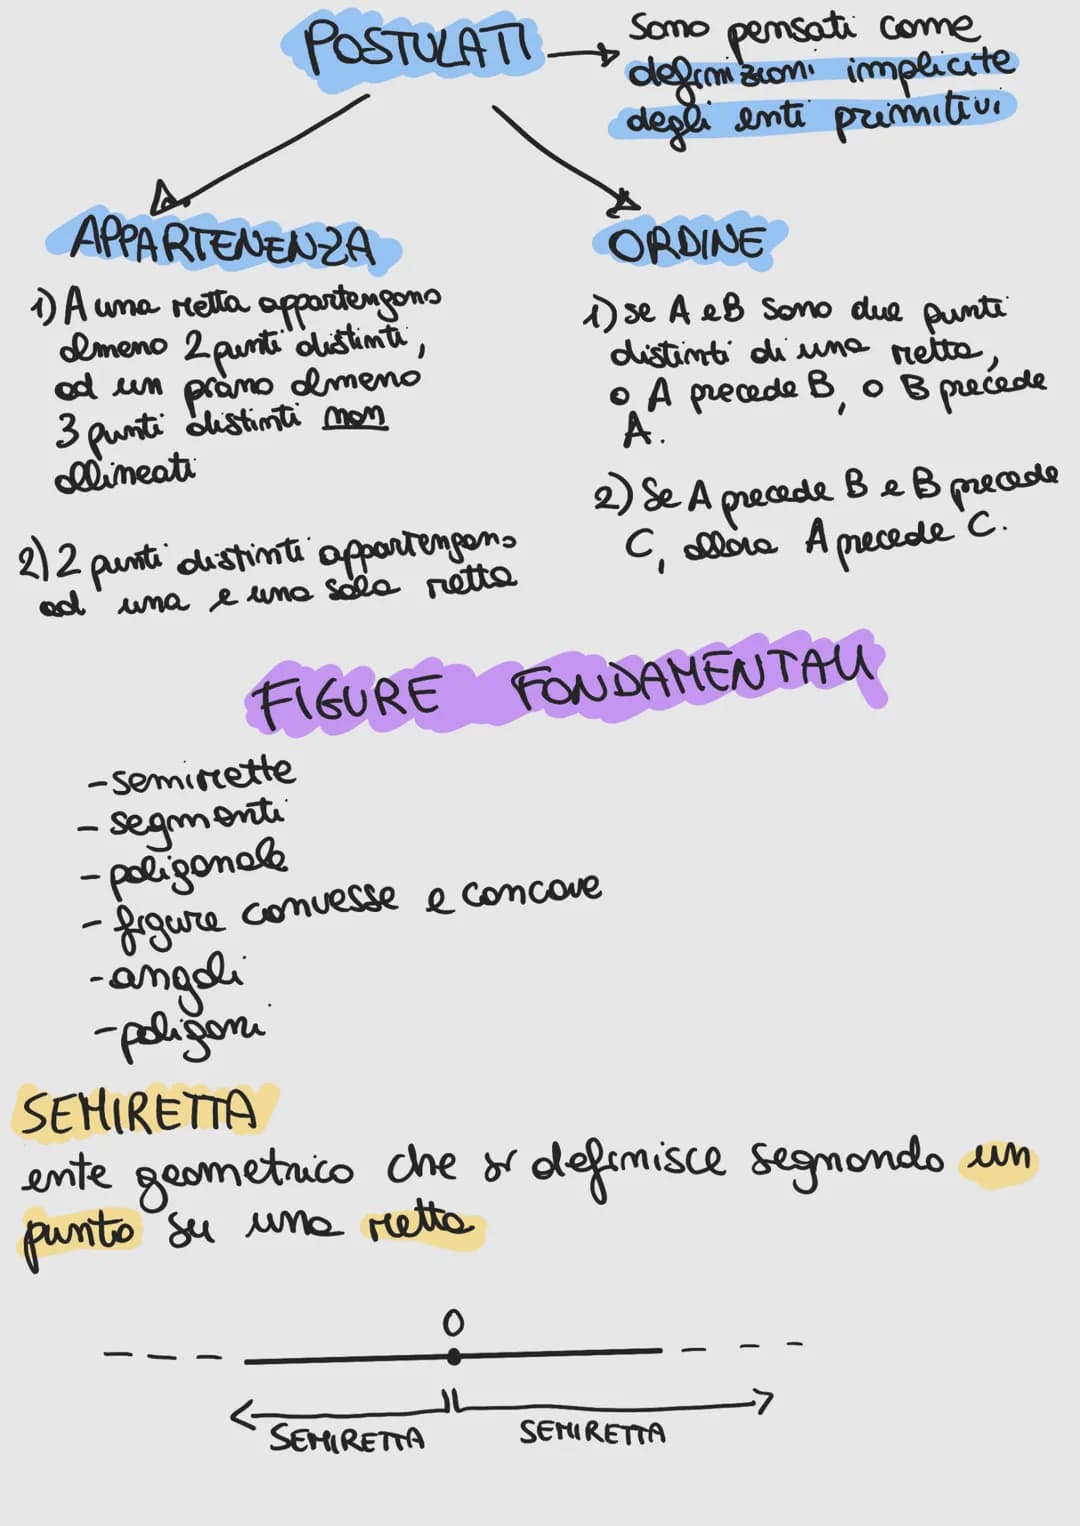 POSTULATI
Sono pensati come
definizioni implicite
degli enti primitivi
APPARTENENZA
1) A una retta appartengono
almeno 2 punti distinti,
ad un piano almeno
3 punti distinti non
allineati
2) 2 punti distinti appartengono
ad una e una sola retta
ORDINE
1) se A e B sono due punti
distinti di una retta,
o A precede B, o B precede
A.
2) Se A precede B e B precede
C, allora A precede C.
FIGURE FONDAMENTALI
- semirette
- segmenti
- poligonale
- figure convesse e concave
- angoli
- poligoni
SEMIRETTA
ente geometrico che si definisce segnando un
punto su una retta
O
SEMIRETTA SEMIRETTA